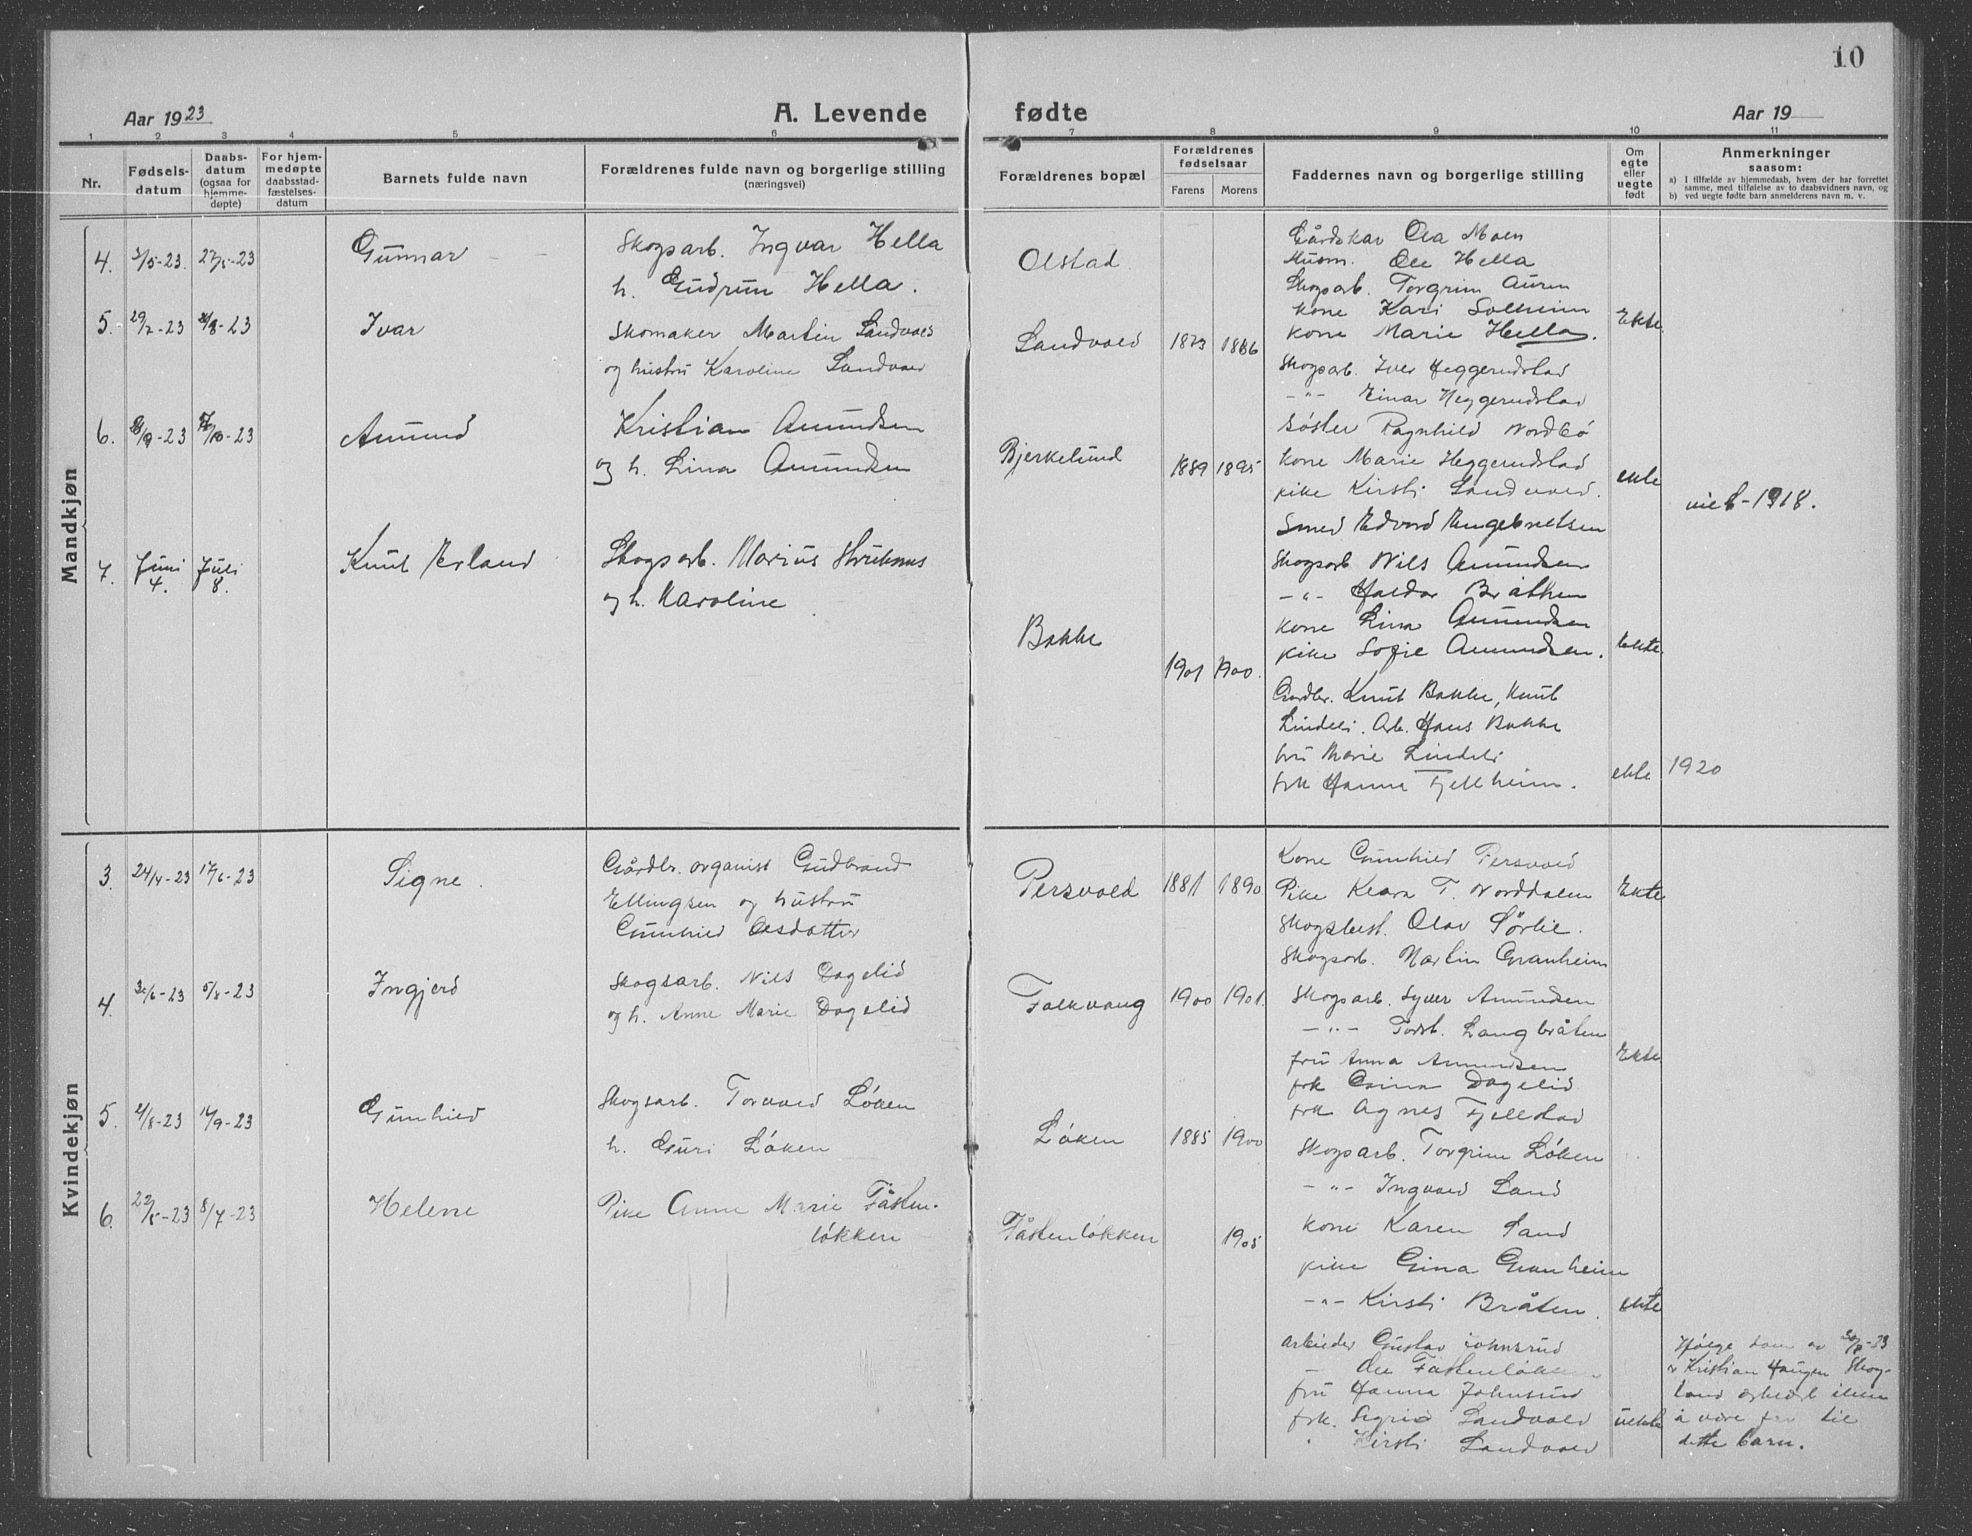 10
Aar 1923 A. Levende fødte Aar 19
1 2 3 4 5 6 7 8 9 10 11
Nr.
Fødsels-
datum
Daabs-
datum
(ogsaa for
hjemme-
døpte)
For hjem-
medøpte
daabsstad-
fæstelses-
datum
Barnets fulde navn
Forældrenes fulde navn og borgerlige stilling
(næringsvei)
Forældrenes bopæl
Forældrenes
fødselsaar
Farens Morens
Faddernes navn og borgerlige stilling
Om
egte
eller
uegte
født
Anmerkninger
saasom:
a) I tilfælde av hjemmedaab, hvem der har forrettet
samme, med tilføielse av to daabsvidners navn, og
b) ved uegte fødte barn anmelderens navn m. v.
Mandkjøn
4. 27/5-23 Gunnar
Skogsarb. Ingvar Hella
h. Gudrun Hella.
Olstad
Gårdskar Ola Moen
Musm. Ole Hella
Skogsarb. Torgrim Auren
kone Kari Solheim
kone Marie Hella.
Ekte
5. 29/7-23 Ivar
Skomaker Martin Sandvold
og hustru Karoline Sandvold
Sandvold 1873
Skogsarb. Iver Heggerudstad
-"- Einar Heggerudstad
søster Ragnhild Nordbø
kone Marie Heggerudstad
pike Kirsti Sandvold.
ekte
6. Amund
Kristian Amundsen
og h. Lina Amundsen
Bjerkelund 1889 1895
Smed Edvard Engebretsen
Skogsarb Nils Amundsen
-"- Haldor Bråthen
kone Lina Amundsen
pike Sofie Amundsen.
ekte
viet-1918.
7. Juni
4.
Juli
8.
Knut Erland
Skogsarb. Marius
og h. Karoline
Bakke 1901 1900.
Gardbr. Knut Bakke, Knut
Lindeli. Arb. Hans Bakke
fru Marie Lindeli
frk Hanna Fjellheim.
ekte 1920
Kvindekjøn
3. 24/4-23 17/6-23 Signe.
Gårdbr. organist Gudbrand
Ellingsen og hustru
Gunhild Olsdatter
Persvold 1881 1890
Kone Gunhild Persvold
Pike Klara T. Norddalen
Skogsbest. Olav Sørlie.
Skogsarb. Martin Granheim
Ekte
4. 5/8-23 Ingjerd
Skogsarb. Nils Dagelid
og h. Anne Marie Dagelid
Falkvang 1900 1901.
Skogsarb. Syver Amundsen
-"- Torst. Langbråten
fru Anna Amundsen
frk Dagelid
frk Agnes Fjellstad
Ekte
5. Gunhild
Skogsarb. Torvald Løken
h. Guri Løken
Løken 1885 1900
Skogsarb. Torgrim Løken
-"- Ingvald Sand
kone Karen Sand
pike Gina Granheim
-"- Kirsti Bråten.
ekte
6. 22/5-23 8/7-23 Helene
Pike Anne Marie Fåsten-
løkken
Fåstenløkken 1905
arbeider Gustav Johnsrud
Ole Fåstenløkken
fru Hanna Johnsrud
frk. Sigrid Sandvold
" Kirsti Sandvold
uekte
Ifølge dom av
er Kristian Haugen Skog-
lund erklært ikke
å være far til
dette barn.